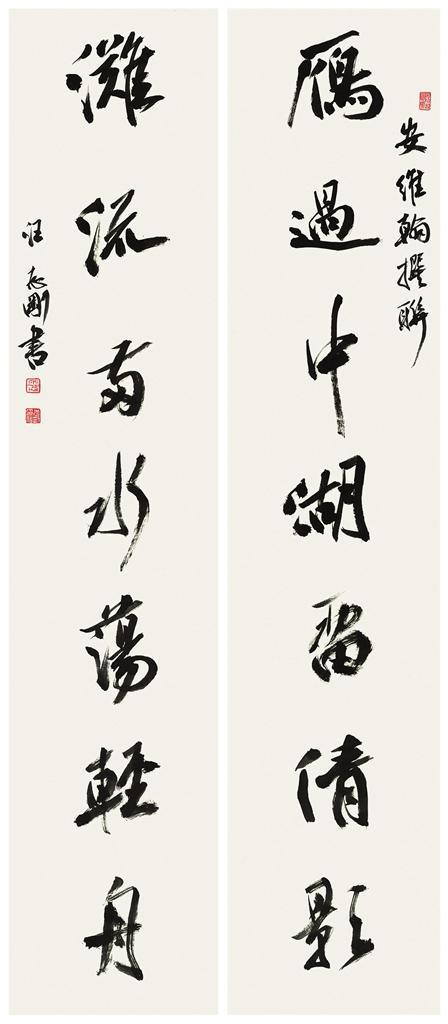 安維翰撰聯
鴈過中湖留倩影
流南水蕩輕舟
汪志剛書